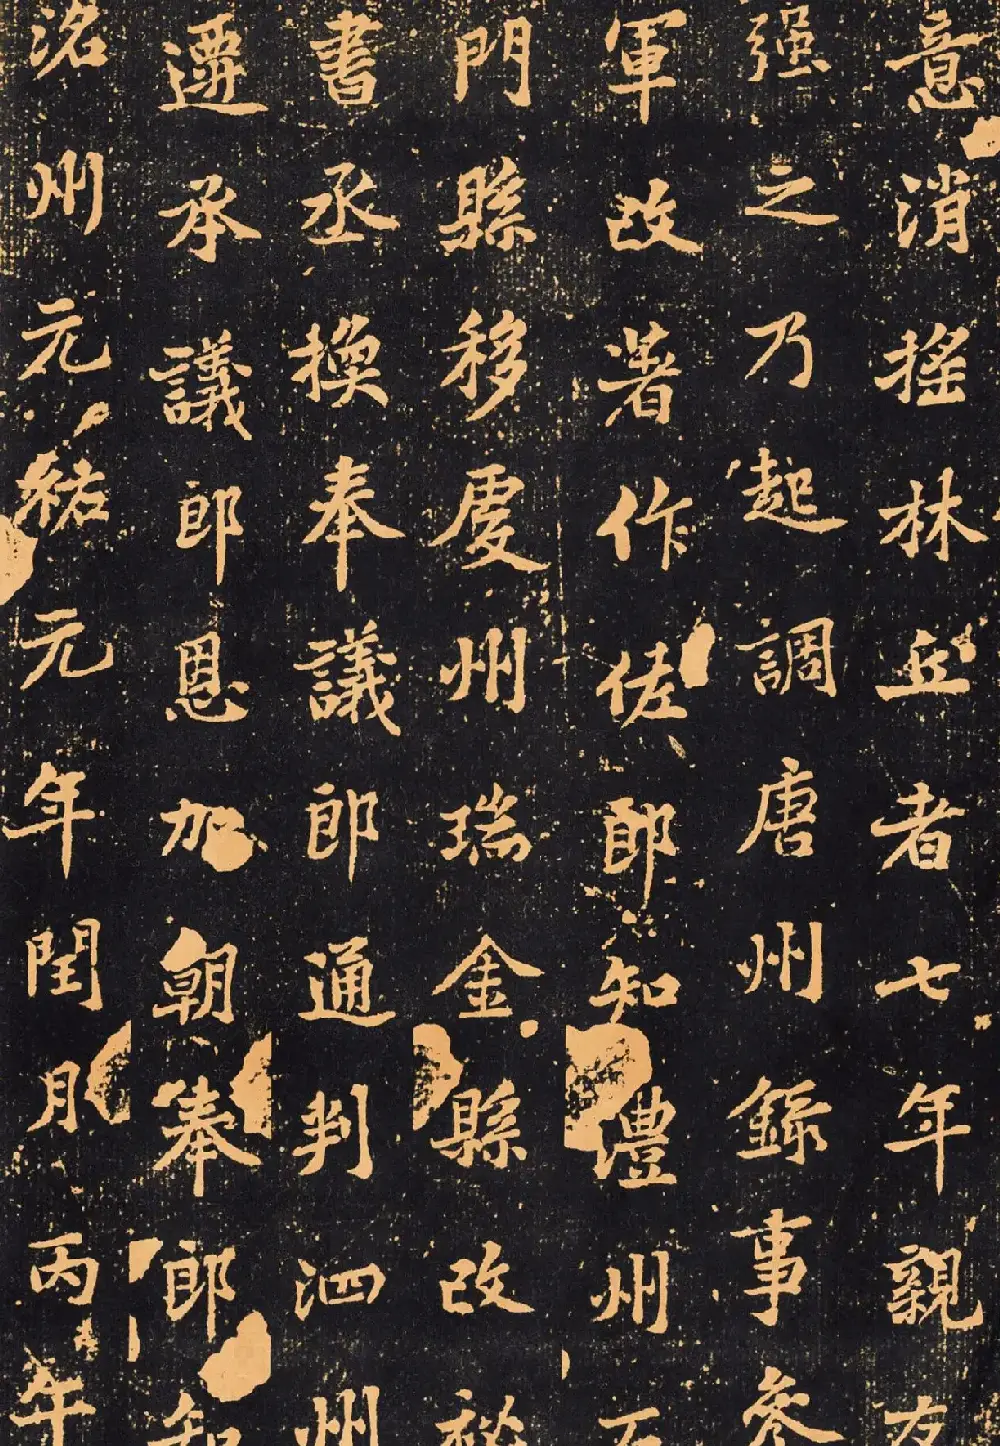 意消搖林丘者七年親友
强之乃起調唐州錄事參
軍改著作佐郎知澧州石
門縣移虔州瑞金縣改秘
書丞換奉議郎通判泗州
遷承議郎恩加朝奉郎知
洺州元祐元年閏月丙午